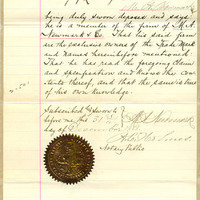 being duly sworn deposes and says
he is a member of the firm of
Newmark & Co. That his said firm
are the exclusive owners of the Trade Mark
and Names hereinbefore mentioned.
That he has read the foregoing Claim
and specification and knows the con-
tents thereof, and that the same is true
of his own knowledge.
Subscribed & Sworn to
before me this 31st
day of
Notary Public